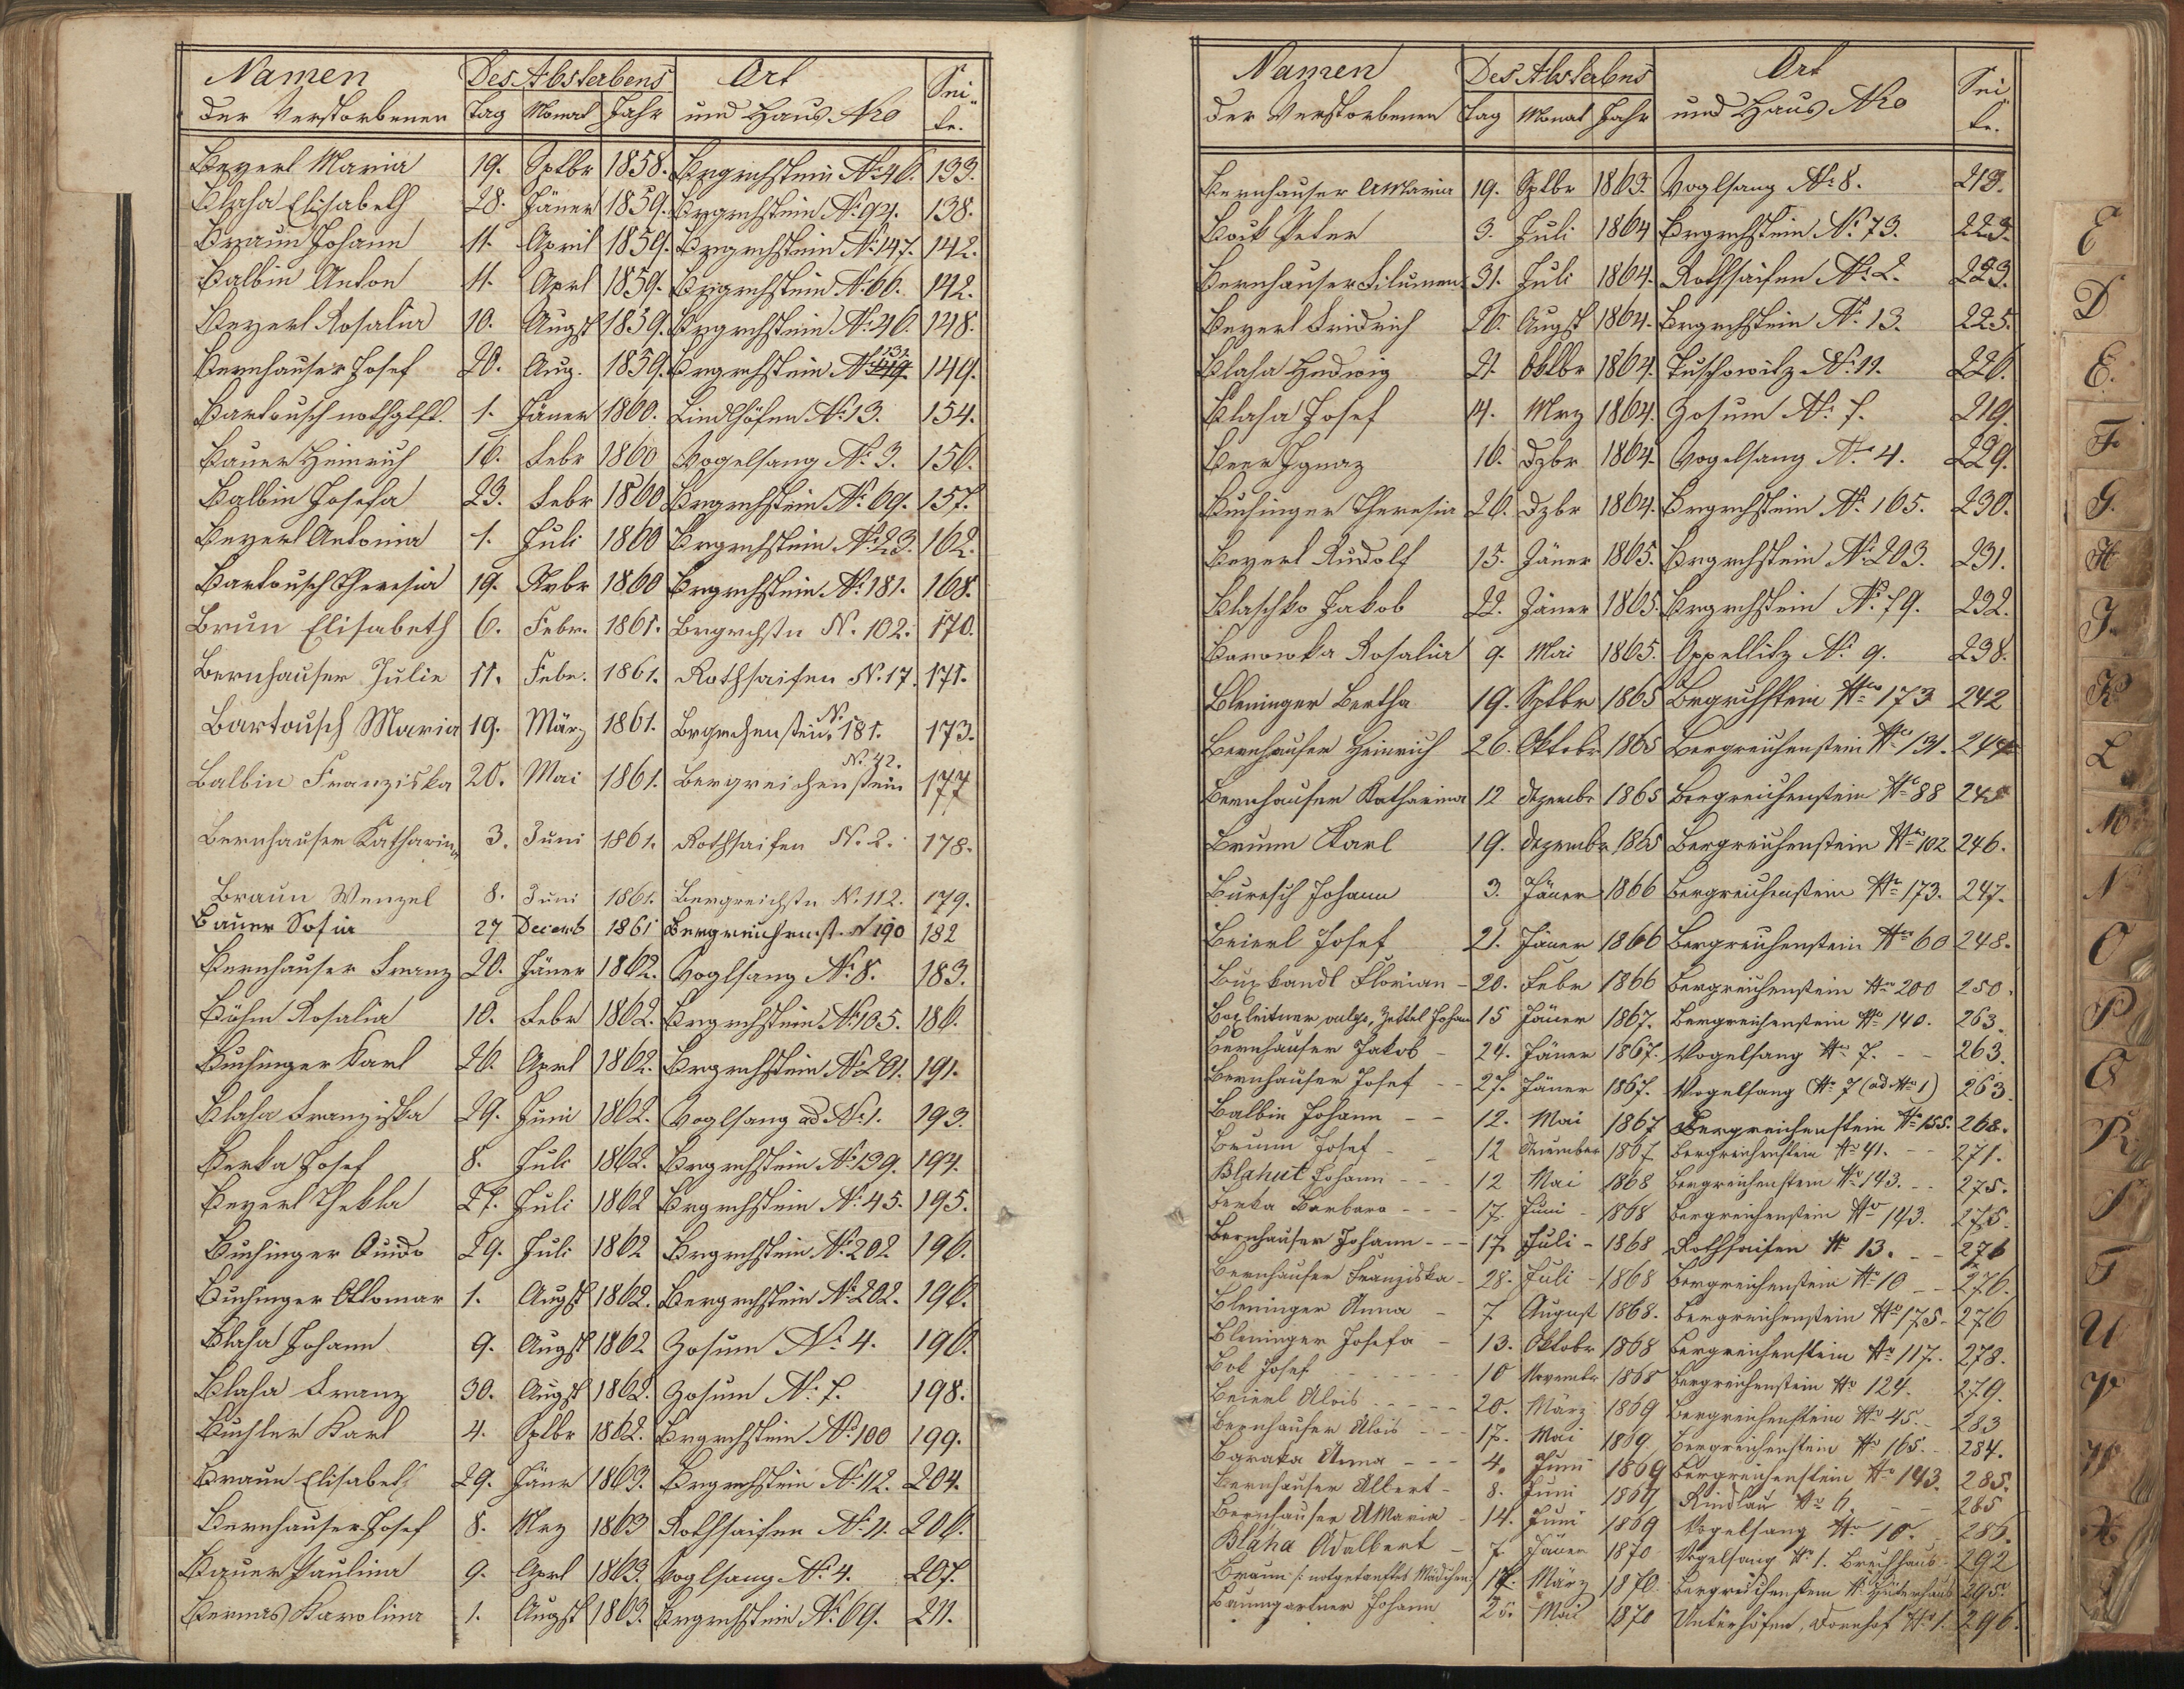 Namen Des Absterbens Ort Sei-
der Verstorbenen Tag Monat Jahr und Haus Nro te.
Beyerl Maria 19. Sptbr 1858. Brgrchstein № 46. 133.
Blaha Elisabeth 28. Jäner 1859. Brgrchstein № 94. 138.
Braun Johann 11. April 1859. Brgrchstein № 147. 142.
Balbin Anton 11. Aprl 1859. Brgrchstein № 66. 142.
Beyerl Rosalia 10. Augst 1859. Brgrchstein № 46. 148.
Bernhauser Josef 20. Aug. 1859. Brgrchstein № 131. 149.
Bartousch nothgtft. 1. Jäner 1860. Lindlhöfen № 13. 154.
Bauer Heinrich 16. Febr 1860 Vogelsang № 3. 156.
Balbin Josefa 23. Febr 1860 Brgrchstein № 69. 157.
Beyerl Antonia 1. Juli 1860 Brgrchstein № 23. 162.
Bartousch Theresia 19. Nvbr 1860 Brgrchstein № 181. 168.
Brun Elisabeth 6. Febr. 1861. Brgrchstn N. 102. 170.
Bernhauser Julie 11. Febr. 1861. Rothsaifen N. 17. 171.
Bartousch Maria 19. März 1861. Brgrchenstein N. 181. 173.
Balbin Franziska 20. Mai 1861. Bergreichenstein N. 42. 177
Bernhauser Katharina 3. Juni 1861. Rothsaifen N. 2. 178.
Braun Wenzel 8. Juni 1861. Bergreichstn N. 112. 179.
Bauer Sofia 27 Decemb 1861 Bergreichenst. N 190 182
Bernhauser Franz 20. Jäner 1862. Voglsang № 8. 183.
Böhm Rosalia 10. Febr 1862. Brgrchstein № 105. 186.
Buchinger Karl 26. Aprl 1862. Brgrchstein № 201. 191.
Blaha Franziska 29. Juni 1862. Voglsang ad № 1. 193.
Berka Josef 8. Juli 1862. Brgrchstein № 139. 194.
Beyerl Thekla 27. Juli 1862 Brgrchstein № 45. 195.
Buchinger Quido 29. Juli 1862 Brgrchstein № 202 196.
Buchinger Ottomar 1. Augst 1862. Bergrchstein № 202. 196.
Blaha Johann 9. Augst 1862 Zosum № 4. 196.
Blaha Franz 30. Augst 1862. Zosum № 7. 198.
Buchler Karl 4. Sptbr 1862. Brgrchstein № 100 199.
Braun Elisabeth 29. Jänr 1863. Brgrchstein № 112. 204.
Bernhauser Josef 8. Mrz 1863 Rothsaifen № 11. 206.
Bauer Paulina 9. Aprl 1863. Voglsang № 4. 207.
Bernas Karolina 1. Augst 1863. Brgrchstein № 69. 211.
Namen Des Absterbens Ort Sei
der Verstorbenen Tag Monat Jahr und Haus Nro te.
Bernhauser AMaria 19. Sptbr 1863. Voglsang № 8. 213.
Bock Peter 3. Juli 1864 Brgrchstein № 73. 223.
Bernhauser Filumen 31. Juli 1864. Rothsaifen № 2. 223.
Beyerl Fridrich 26. Augst 1864. Brgrchstein № 13. 225.
Blaha Hedwig 21. Oktbr 1864. Tuschowitz № 11. 226.
Blaha Josef 14. Mrz 1864. Zosum № 7. 219.
Beer Ignaz 16. Dzbr 1864. Vogelsang № 4. 229.
Buchinger Theresia 26. Dzbr 1864. Brgrchstein № 165. 230.
Beyerl Rudolf 15. Jäner 1865. Brgrchstein № 203. 231.
Blaschko Jakob 22. Jäner 1865. Brgrchstein № 79. 232.
Barowka Rosalia 9. Mai 1865. Oppellitz № 9. 238.
Bleninger Bertha 19. Sptbr 1865 Brgrchstein Nro 173 242
Bernhauser Heinrich 26. Oktobr 1865 Bergreichenstein Nro 131. 244
Bernhauser Katharina 12 Dezembr 1865 Bergreichenstein Nro 88 245
Brunn Karl 19. Dezembr 1865 Bergreichenstein Nro 102 246.
Buresch Johann 3. Jäner 1866 Bergreichenstein Nro 173. 247.
Beierl Josef 21. Jäner 1866 Bergreichenstein Nro 60 248.
Buxkandl Florian - 20. Febr 1866 Bergreichenstein Nro 200 250.
Boxleitner, vulgo, Zettel Johan 15 Jäner 1867. Bergreichenstein Nro 140. 263.
Bernhauser Jakob - 24. Jäner 1867. Vogelsang Nro 7. - - 263.
Bernhauser Josef - - 27. Jäner 1867. Vogelsang Nro 7 (ad Nro 1) 263.
Balbin Johann - - 12. Mai 1867 Bergreichenstein Nro 155. 268.
Brunn Josef - - 12 Dezember 1867 Bergreichenstein Nro 41. - - 271.
Blahut Johann - - - 12 Mai 1868 Bergreichenstein Nro 143. - - 275.
Berka Barbara - - - 17. Juni - 1868 Bergreichenstein Nro 143. 275.
Bernhauser Johann - - - 17. Juli - 1868 Rothsaifen N 13. - - 276
Bernhauser Franziska - 28. Juli - 1868 Bergreichenstein Nro 10 - - 276.
Bleninger Anna - 7 August 1868. Bergreichenstein Nro 175. - 276
Bleninger Josefa - 13. Oktobr 1868 Bergreichenstein Nro 117. 278.
Bok Josef - - - - - 10 Novembr 1868 Bergreichenstein Nro 124. 279.
Beierl Alois - - - - - 20. März 1869 Bergreichenstein Nro 45. - 283
Bernhauser Alois - - - 17. Mai 1869 Bergreichenstein Nro 165. - 284.
Baraka Anna - - - 4. Juni 1869 Bergreichenstein Nro 143. 285.
Bernhauser Albert - 8. Juni 1869 Rindlau Nro 6. - - 285
Bernhauser AMaria - 14. Juni 1869 Vogelsang Nro 10. 286.
Bláha Adalbert - 7. Jäner 1870 Vogelsang Nro 1. Bruchhaus 292
Braun /: notgetauftes Mädchen :/ 17. März 1870. Bergreichenstein N. Hüterhaus 295.
Baumgartner Johann 25. Mai 1870 Unterhöfen, Dornhof Nro 1. 296.
D
E.
F
G.
H
J.
K
L
M
N
O
P
Q
R
S
T
U
V
W